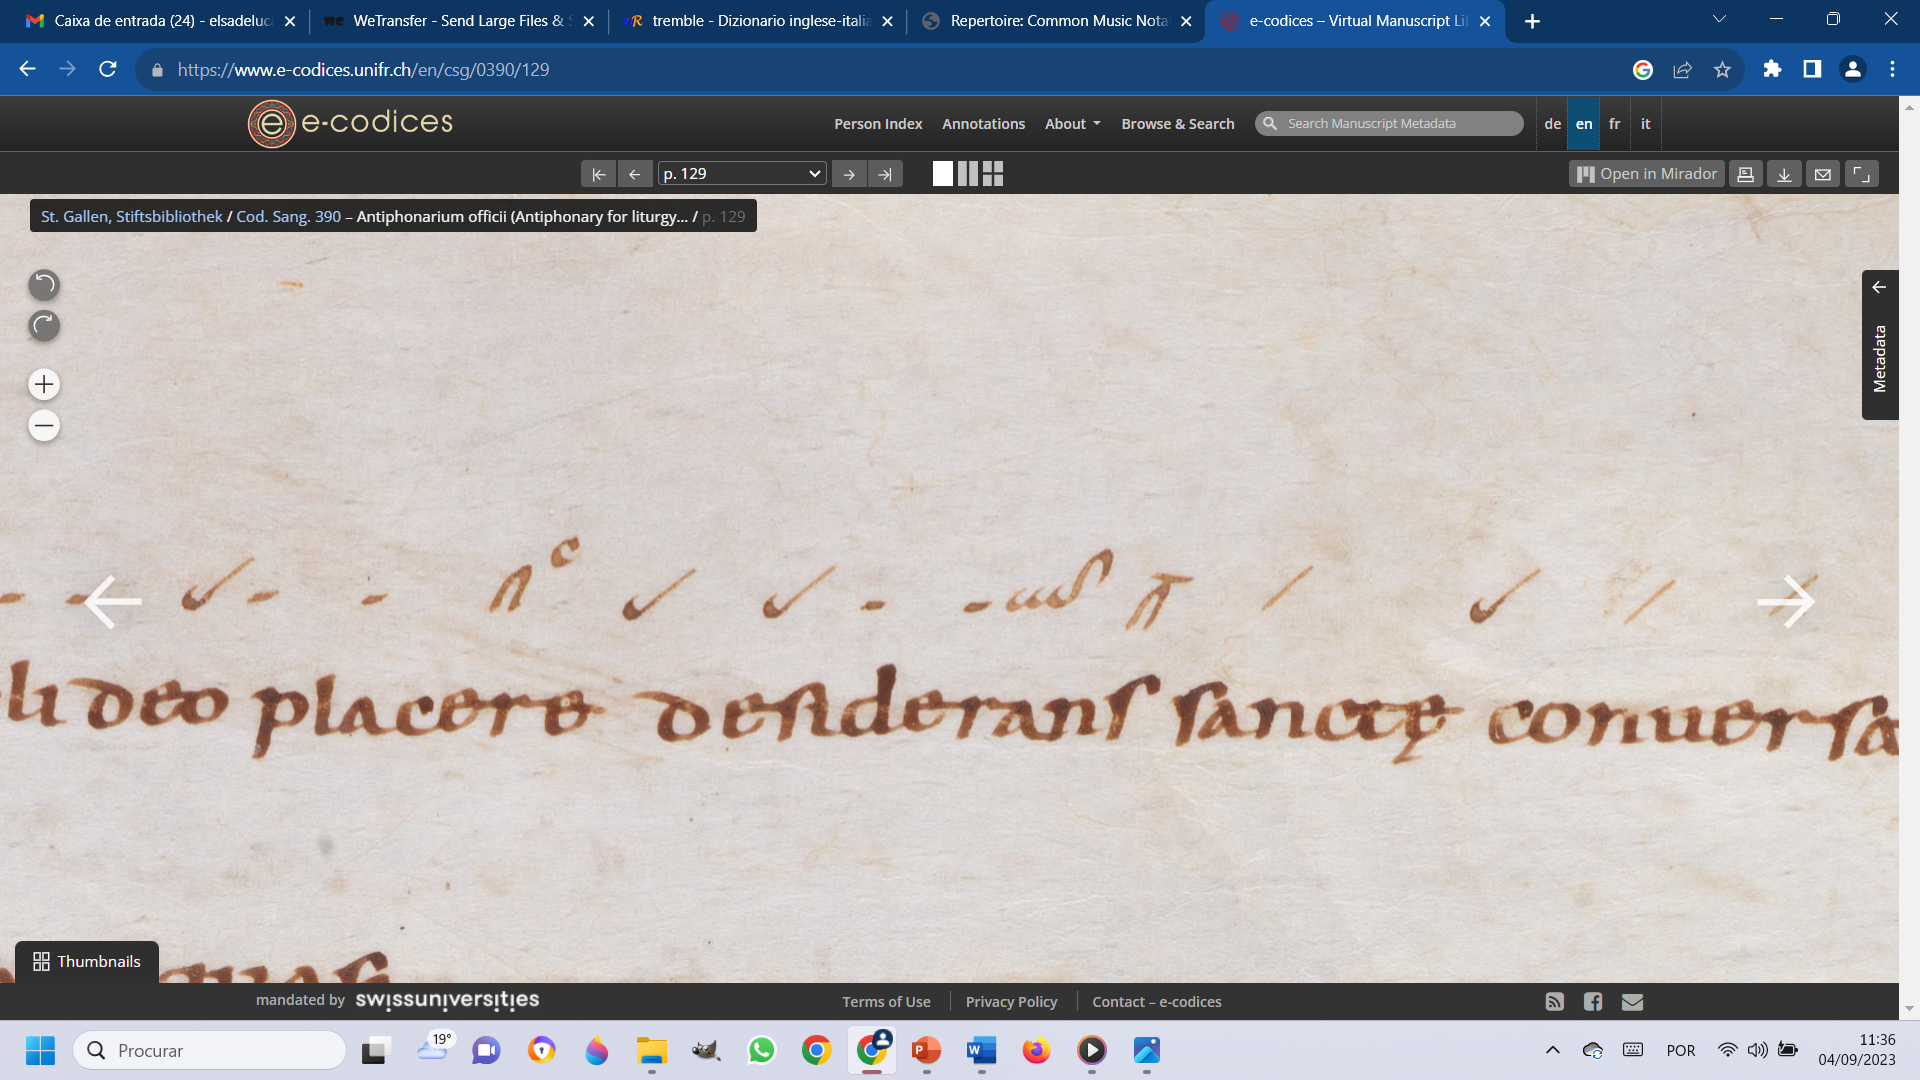 Caixa de entrada (24) - elsadeluc
WeTransfer - Send Large Files & S
tremble - Dizionario inglese-italia
Repertoire: Common Music Nota
e-codices – Virtual Manuscript Li
https://www.e-codices.unifr.ch/en/csg/0390/129
e-codices
Person Index
Annotations
About
Browse & Search
Search Manuscript Metadata
de
en
fr
it
p. 129
Open in Mirador
St. Gallen, Stiftsbibliothek / Cod. Sang. 390 – Antiphonarium officii (Antiphonary for liturgy... / p. 129
Metadata
c
li deo placere desiderans sanctę conuersa
Thumbnails
mandated by swissuniversities
Terms of Use
Privacy Policy
Contact – e-codices
Procurar
19°
POR
11:36
04/09/2023